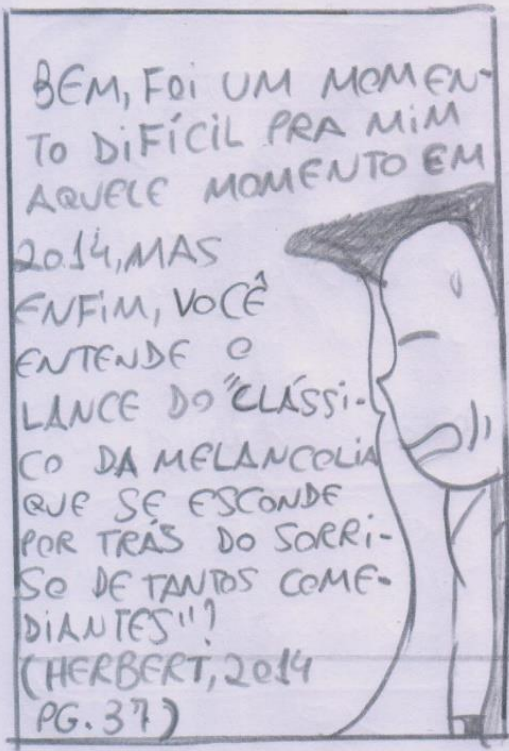 BEM, FOI UM MOMEN-
TO DIFÍCIL PRA MIM
AQUELE MOMENTO EM
2014, MAS
ENFIM, VOCÊ
ENTENDE O
LANCE DO "CLÁSSI-
CO DA MELANCOLIA
QUE SE ESCONDE
POR TRÁS DO SORRI-
SO DE TANTOS COME-
DIANTES"?
(HERBERT, 2014
PG. 37)